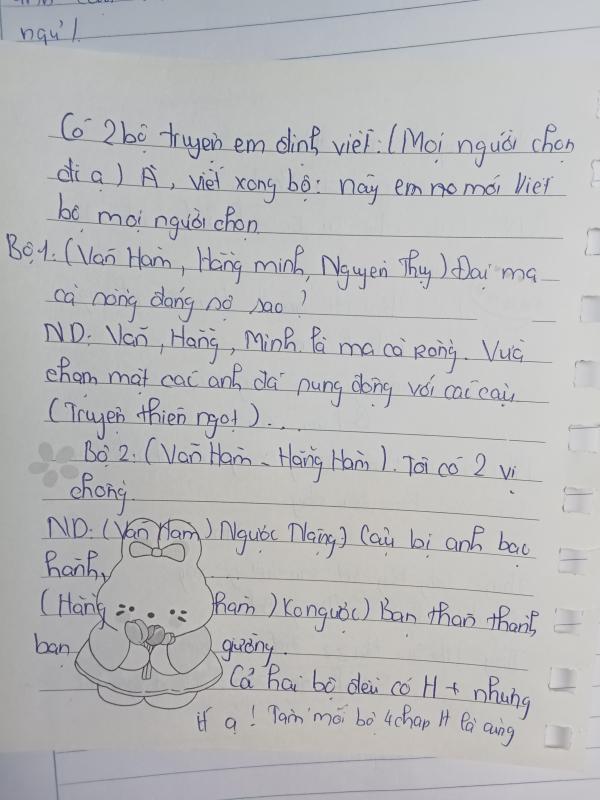 ngủ).
Có 2 bộ truyện em định viết: (Mọi người chọn
đi ạ) À, viết xong bộ: này em mới viết
bộ mọi người chọn
Bộ 1: (Văn Hàm, Hằng minh, Nguyên Thụy) Đại ma
cà rồng đáng sợ sao?
ND: Văn, Hằng, Minh là ma cà Rồng. Vừa
chạm mặt các anh đã rung động với các cậu
(Truyện thiên ngọt)...
Bộ 2: (Văn Hàm - Hằng Hàm). Tôi có 2 vị
chồng
ND: (Văn Hàm) Ngược Nặng) Cậu bị anh bạo
hành,
(Hằng hàm) Ko ngược) Bạn thân thành
bạn giường.
Cả hai bộ đều có H+ nhưng
ít ạ! Tầm mỗi bộ 4 chap H là cùng